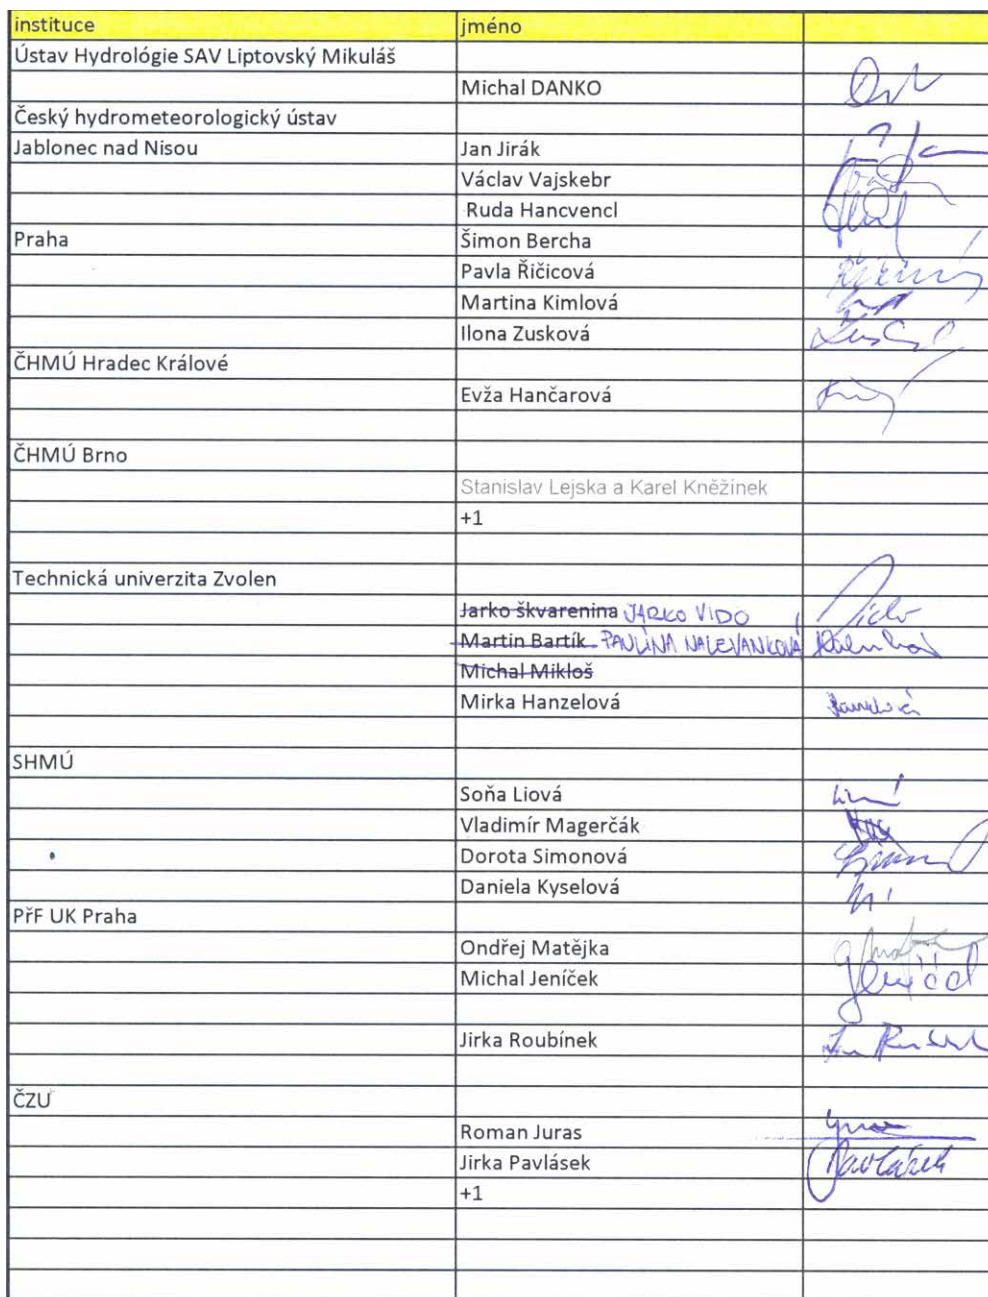 instituce jméno
Ústav Hydrológie SAV Liptovský Mikuláš
Michal DANKO
Český hydrometeorologický ústav
Jablonec nad Nisou Jan Jirák
Václav Vajskebr
Ruda Hancvencl
Praha Šimon Bercha
Pavla Řičicová
Martina Kimlová
Ilona Zusková
ČHMÚ Hradec Králové
Evža Hančarová
ČHMÚ Brno
Stanislav Lejska a Karel Kněžínek
+1
Technická univerzita Zvolen
Jarko škvarenina JARKO VIDO
Martin Bartík PAULÍNA NALEVANKOVÁ
Michal Mikloš
Mirka Hanzelová
SHMÚ
Soňa Liová
Vladimír Magerčák
Dorota Simonová
Daniela Kyselová
PřF UK Praha
Ondřej Matějka
Michal Jeníček
Jirka Roubínek
ČZU
Roman Juras
Jirka Pavlásek Pavlásek
+1